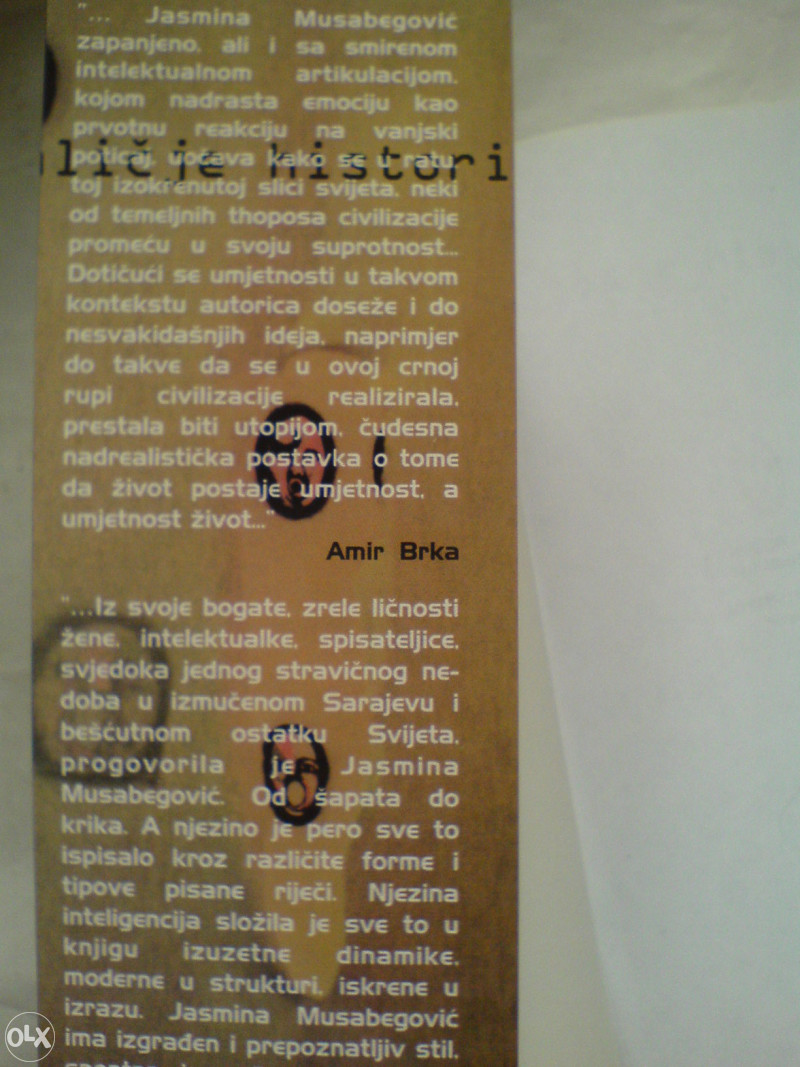 "... Jasmina Musabegović
zapanjeno, ali i sa smirenom
intelektualnom artikulacijom,
kojom nadrasta emociju kao
prvotnu reakciju na vanjski
poticaj, uočava kako se u ratu,
ličje histori
toj izokrenutoj slici svijeta, neki
od temeljnih thoposa civilizacije
promeću u svoju suprotnost...
Dotičući se umjetnosti u takvom
kontekstu autorica doseže i do
nesvakidašnjih ideja, naprimjer
do takve da se u ovoj crnoj
rupi civilizacije realizirala,
prestala biti utopijom, čudesna
nadrealistička postavka o tome
da život postaje umjetnost, a
umjetnost život..."
Amir Brka
"...Iz svoje bogate, zrele ličnosti
žene, intelektualke, spisateljice,
svjedoka jednog stravičnog ne-
doba u izmučenom Sarajevu i
bešćutnom ostatku Svijeta,
progovorila je Jasmina
Musabegović. Od šapata do
krika. A njezino je pero sve to
ispisalo kroz različite forme i
tipove pisane riječi. Njezina
inteligencija složila je sve to u
knjigu izuzetne dinamike,
moderne u strukturi, iskrene u
izrazu. Jasmina Musabegović
ima izgrađen i prepoznatljiv stil,
OLX